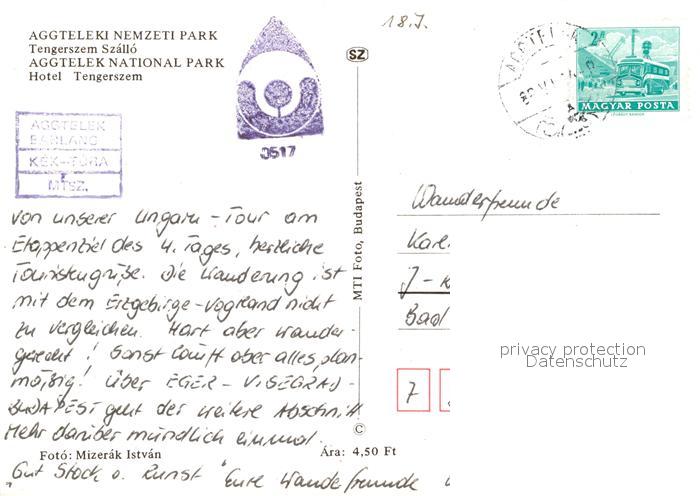 18.7.
AGGTELEKI NEMZETI PARK
Tengerszem Szálló
AGGTELEK NATIONAL PARK
Hotel Tengerszem
SZ
0517
AGGTELEK
BARLANG
KÉK-TÚRA
MTSZ.
2Ft
MAGYAR POSTA
Von unserer Ungarn-Tour am
Etappenziel des 4. Tages, herzliche
Touristengrüße. Die Wanderung ist
mit dem Erzgebirge-Vogtland nicht
zu vergleichen. Hart aber wander-
gerecht! Sonst läuft aber alles plan-
mäßig! Über EGER - VISEGRAD-
BUDAPEST geht der weitere Abschnitt
Mehr darüber mündlich einmal.
"Gut Stock o. Kunst" Eure Wanderfreunde
Fotó: Mizerák István
Ára: 4,50 Ft
MTI Foto, Budapest
©
Wanderfreunde
Karl.
Bad
7
privacy protection
Datenschutz